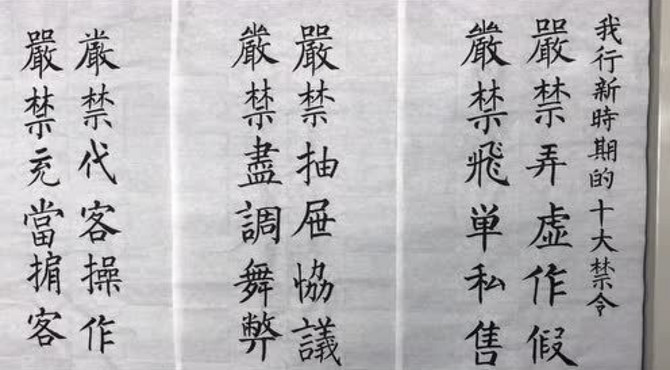 我行新時期的十大禁令
嚴禁弄虚作假
厳禁飛単私售
嚴禁抽屉恊議
厳禁盡調舞弊
厳禁代客操作
嚴禁充當掮客